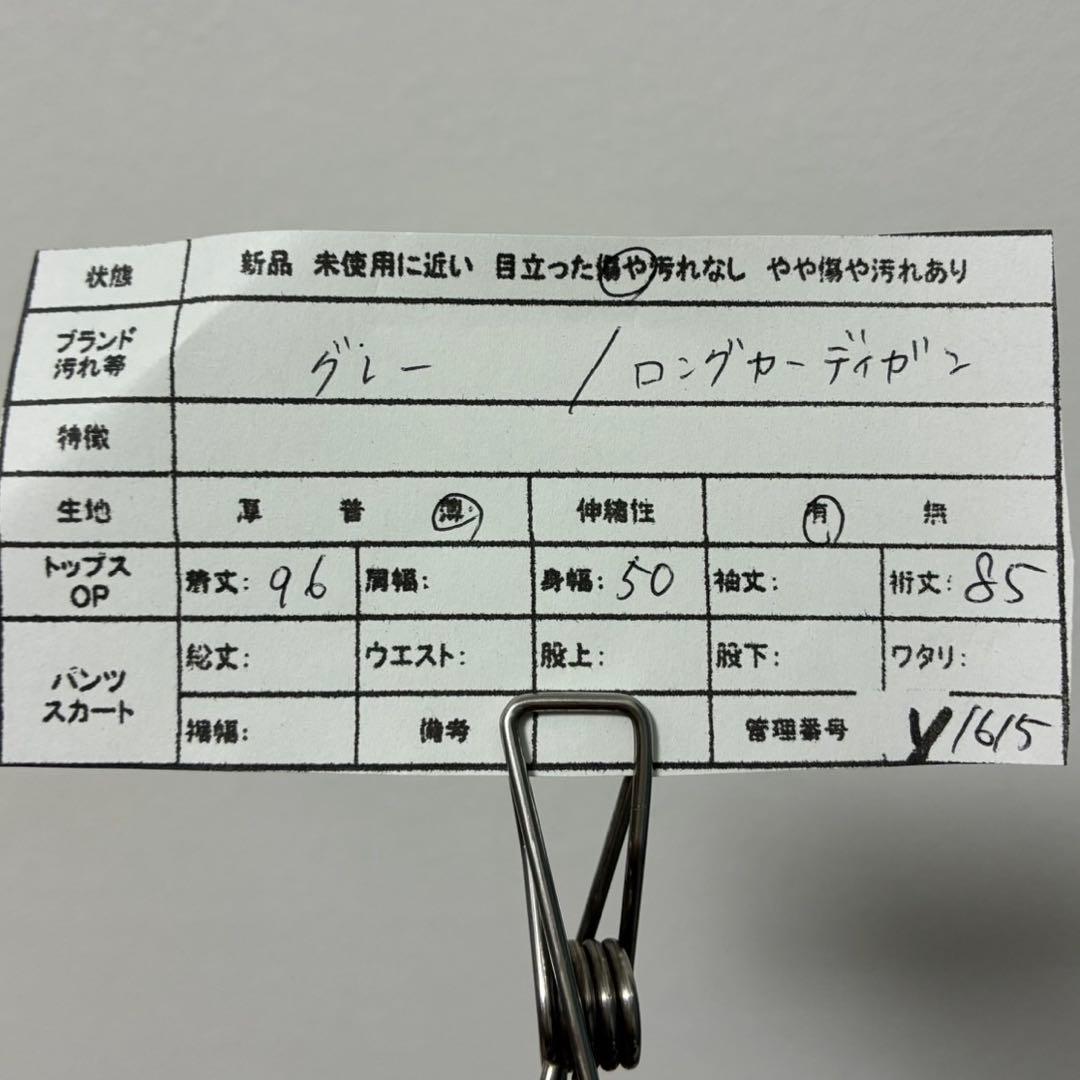 状態 新品 未使用に近い 目立った傷や汚れなし やや傷や汚れあり
ブランド
汚れ等
グレー / ロングカーディガン
特徴
生地 厚 普 薄 伸縮性 有 無
トップス
OP
着丈: 96 肩幅: 身幅: 50 袖丈: 裄丈: 85
パンツ
スカート
総丈: ウエスト: 股上: 股下: ワタリ:
裾幅: 備考 管理番号 y1615